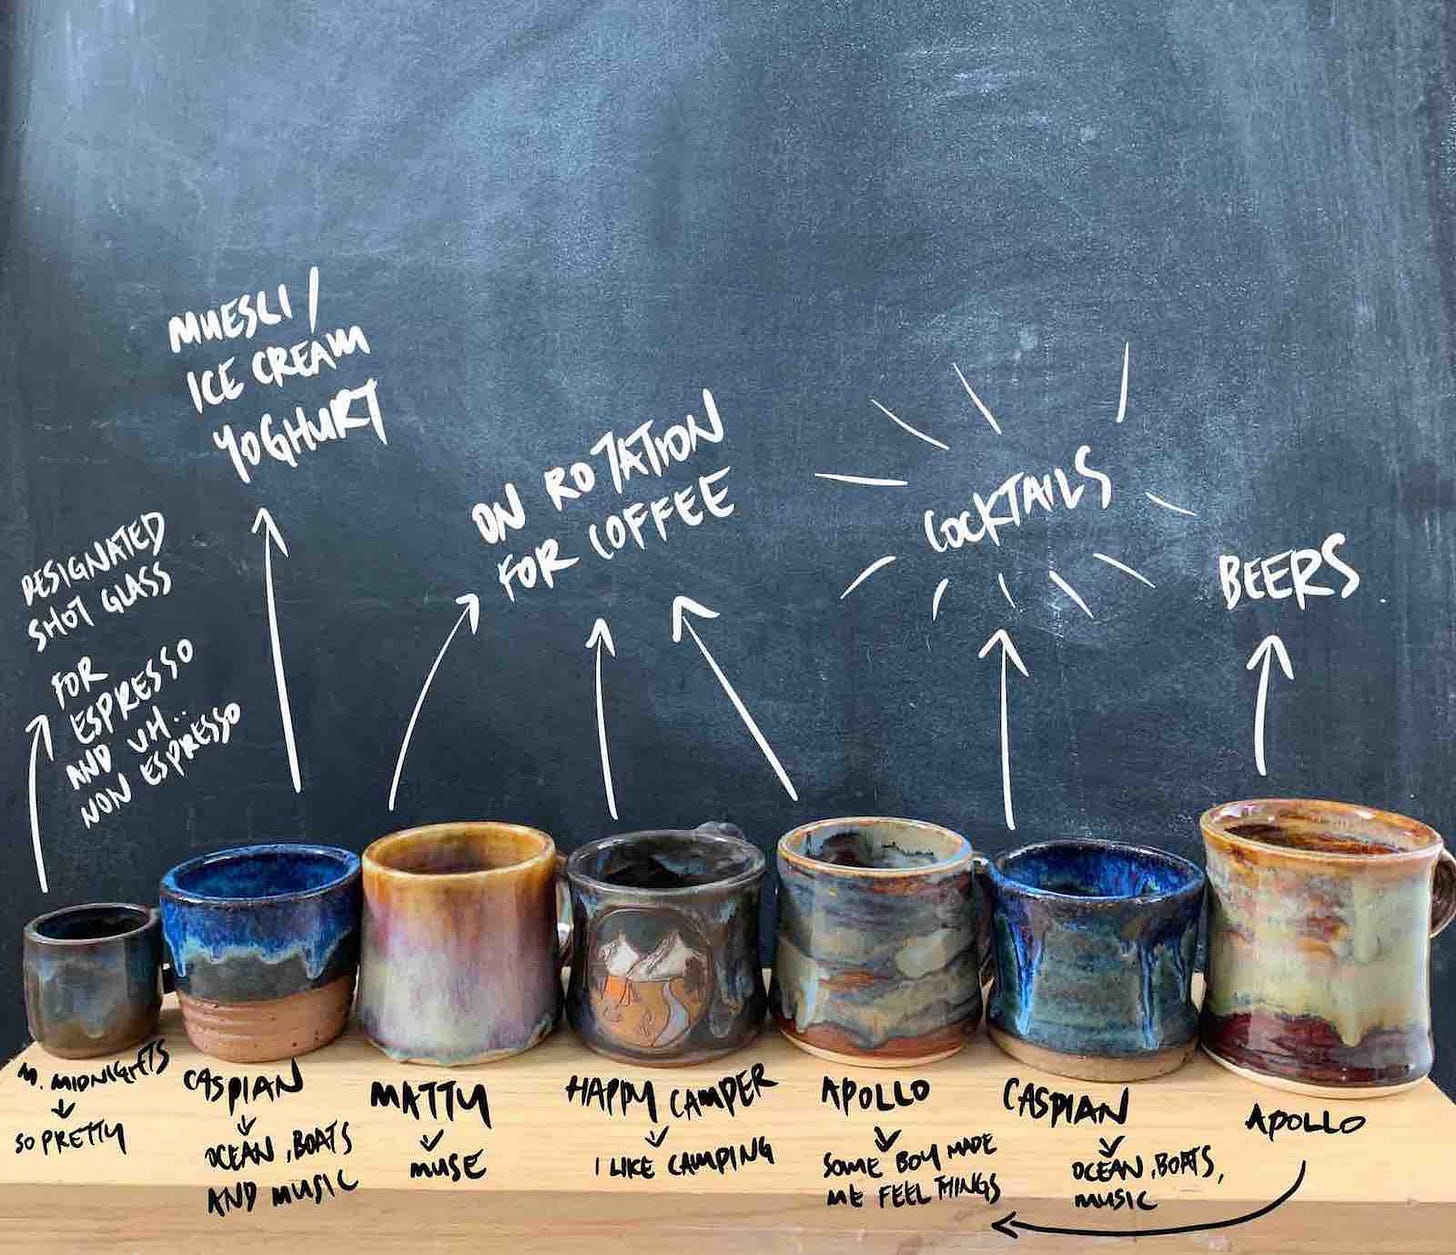 MUESLI/
ICE CREAM
YOGHURT
ON ROTATION
FOR COFFEE
COCKTAILS
BEERS
DESIGNATED
SHOT GLASS
FOR
ESPRESSO
AND UH..
NON ESPRESSO
M. MIDNIGHTS
SO PRETTY
CASPIAN
OCEAN, BOATS
AND MUSIC
MATTY
MUSE
HAPPY CAMPER
I LIKE CAMPING
APOLLO
SOME BOY MADE
ME FEEL THINGS
CASPIAN
OCEAN, BOATS,
MUSIC
APOLLO